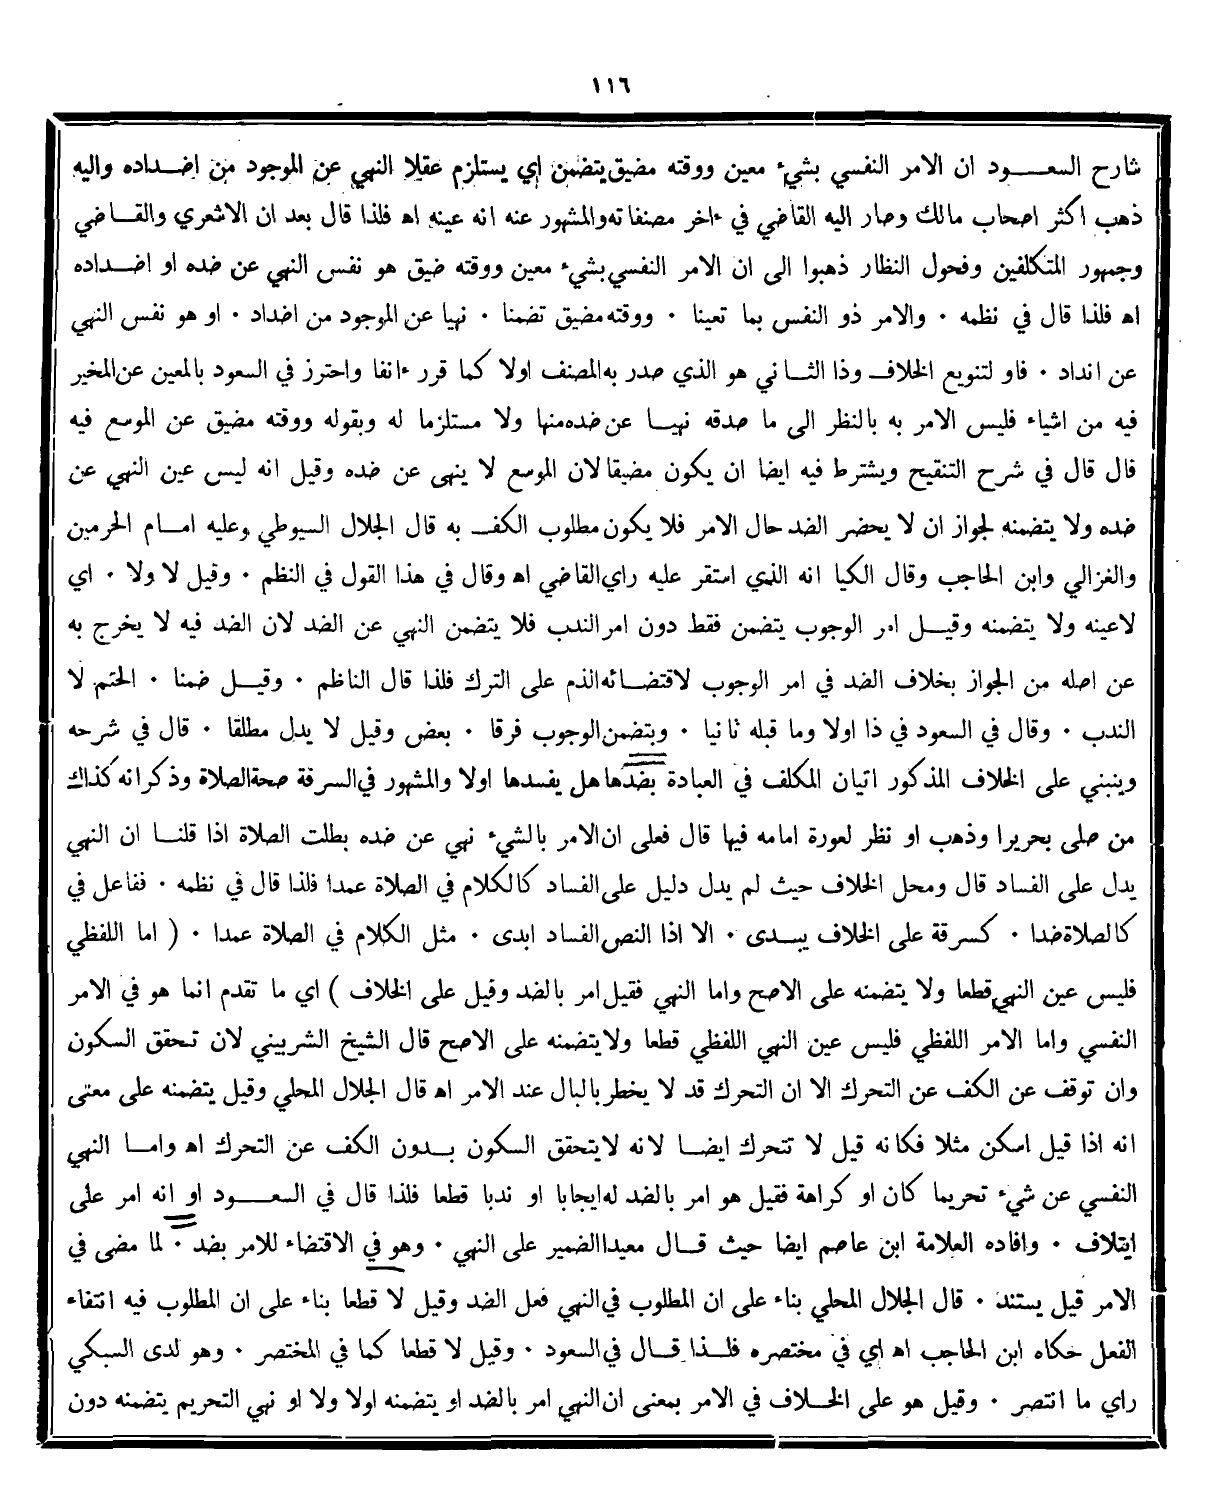 ١١٦
شارح السعود ان الامر النفسي بشيء معين ووقته مضيق يتضمن اي يستلزم عقلا النهي عن الموجود من اضداده واليه
ذهب اكثر اصحاب مالك وصار اليه القاضي في ءاخر مصنفاته والمشهور عنه انه عينه اه فلذا قال بعد ان الاشعري والقاضي
وجمهور المتكلفين وفحول النظار ذهبوا الى ان الامر النفسي بشيء معين ووقته ضيق هو نفس النهي عن ضده او اضداده
اه فلذا قال في نظمه ٠ والامر ذو النفس بما تعينا ٠ ووقته مضيق تضمنا ٠ نهيا عن الموجود من اضداد ٠ او هو نفس النهي
عن انداد ٠ فاو لتنويع الخلاف وذا الثاني هو الذي صدر به المصنف اولا كما قرر ءانفا واحترز في السعود بالمعين عن المخير
فيه من اشياء فليس الامر به بالنظر الى ما صدقه نهيا عن ضده منها ولا مستلزما له وبقوله ووقته مضيق عن الموسع فيه
قال قال في شرح التنقيح ويشترط فيه ايضا ان يكون مضيقا لان الموسع لا ينهى عن ضده وقيل انه ليس عين النهي عن
ضده ولا يتضمنه لجواز ان لا يحضر الضد حال الامر فلا يكون مطلوب الكف به قال الجلال السيوطي وعليه امام الحرمين
والغزالي وابن الحاجب وقال الكيا انه الذي استقر عليه راي القاضي اه وقال في هذا القول في النظم ٠ وقيل لا ولا ٠ اي
لاعينه ولا يتضمنه وقيل امر الوجوب يتضمن فقط دون امر الندب فلا يتضمن النهي عن الضد لان الضد فيه لا يخرج به
عن اصله من الجواز بخلاف الضد في امر الوجوب لاقتضائه الذم على الترك فلذا قال الناظم ٠ وقيل ضمنا ٠ الحتم لا
الندب ٠ وقال في السعود في ذا اولا وما قبله ثانيا ٠ وبتضمن الوجوب فرقا ٠ بعض وقيل لا يدل مطلقا ٠ قال في شرحه
وينبني على الخلاف المذكور اتيان المكلف في العبادة بضدها هل يفسدها اولا والمشهور في السرقة صحة الصلاة وذكر انه كذاك
من صلى بحريرا وذهب او نظر لعورة امامه فيها قال فعلى ان الامر بالشيء نهي عن ضده بطلت الصلاة اذا قلنا ان النهي
يدل على الفساد قال ومحل الخلاف حيث لم يدل دليل على الفساد كالكلام في الصلاة عمدا فلذا قال في نظمه ٠ ففاعل في
كالصلاة ضدا ٠ كسرقة على الخلاف يسدى ٠ الا اذا النص الفساد ابدى ٠ مثل الكلام في الصلاة عمدا ٠ ( اما اللفظي
فليس عين النهي قطعا ولا يتضمنه على الاصح واما النهي فقيل امر بالضد وقيل على الخلاف ) اي ما تقدم انما هو في الامر
النفسي واما الامر اللفظي فليس عين النهي اللفظي قطعا ولا يتضمنه على الاصح قال الشيخ الشربيني لان تحقق السكون
وان توقف عن الكف عن التحرك الا ان التحرك قد لا يخطر بالبال عند الامر اه قال الجلال المحلي وقيل يتضمنه على معنى
انه اذا قيل اسكن مثلا فكانه قيل لا تتحرك ايضا لانه لا يتحقق السكون بدون الكف عن التحرك اه واما النهي
النفسي عن شيء تحريما كان او كراهة فقيل هو امر بالضد له ايجابا او ندبا قطعا فلذا قال في السعود او انه امر على
ايتلاف ٠ وافاده العلامة ابن عاصم ايضا حيث قال معيدا الضمير على النهي ٠ وهو في الاقتضاء للامر بضد ٠ لما مضى في
الامر قيل يستند ٠ قال الجلال المحلي بناء على ان المطلوب في النهي فعل الضد وقيل لا قطعا بناء على ان المطلوب فيه انتفاء
الفعل حكاه ابن الحاجب اه اي في مختصره فلذا قال في السعود ٠ وقيل لا قطعا كما في المختصر ٠ وهو لدى السبكي
راي ما انتصر ٠ وقيل هو على الخلاف في الامر بمعنى ان النهي امر بالضد او يتضمنه اولا ولا او نهي التحريم يتضمنه دون